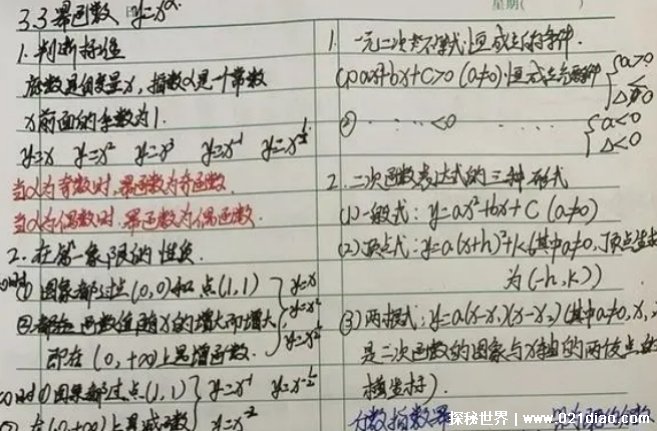 3.3 幂函数 y=x^α.
1. 判断标准
底数是自变量x，指数α是一个常数
x前面的系数为1.
y=x y=x² y=x³ y=x⁻¹ y=x^½
当α为奇数时，幂函数为奇函数.
当α为偶数时，幂函数为偶函数.
2. 在第一象限的性质.
① 图象都过点(0,0)和点(1,1) y=x
②都是函数值随x的增大而增大 y=x²
即在(0,+∞)上是增函数. y=x^½
时①图象都过点(1,1) y=x⁻¹ y=x^-½
在(0,+∞)上是减函数 y=x⁻²
星期(
1. 一元二次不等式恒成立的条件.
(1) ax²+bx+c>0 (a≠0)恒成立 {a>0
Δ<0
② ...... <0 ...... {a<0
Δ<0
2. 二次函数表达式的三种形式
(1)一般式：y=ax²+bx+c (a≠0)
(2)顶点式：y=a(x+h)²+k(其中a≠0，顶点坐标
为(-h,k))
(3)两根式：y=a(x-x₁)(x-x₂)(其中a≠0，x₁，
是二次函数的图象与x轴的两个交点的
横坐标).
分数指数幂
探秘世界|www.021diao.com